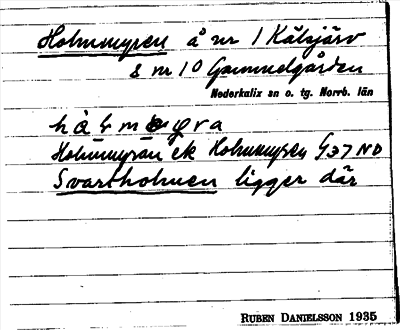 Holmmyren å nr 1 Kälsjärv
& nr 10 Gammelgården
Nederkalix sn o. tg. Norrb. län
Holmmyran ek Holmmyren G37 NO
Svartholmen ligger där
RUBEN DANIELSSON 1935